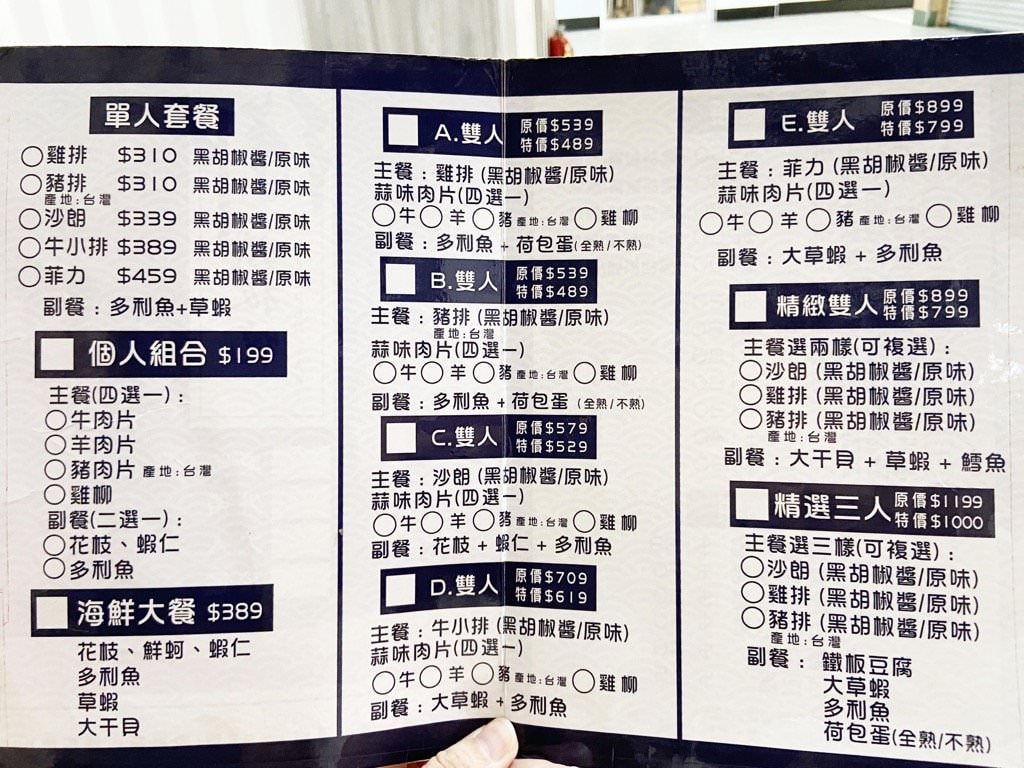 單人套餐
雞排 $310 黑胡椒醬/原味
豬排 $310 黑胡椒醬/原味
產地:台灣
沙朗 $339 黑胡椒醬/原味
牛小排 $389 黑胡椒醬/原味
菲力 $459 黑胡椒醬/原味
副餐：多利魚+草蝦
個人組合 $199
主餐(四選一)：
牛肉片
羊肉片
豬肉片 產地:台灣
雞柳
副餐(二選一)：
花枝、蝦仁
多利魚
海鮮大餐 $389
花枝、鮮蚵、蝦仁
多利魚
草蝦
大干貝
A.雙人 原價$539
特價$489
主餐：雞排(黑胡椒醬/原味)
蒜味肉片(四選一)
牛 羊 豬 產地:台灣 雞柳
副餐：多利魚+荷包蛋(全熟/不熟)
B.雙人 原價$539
特價$489
主餐：豬排(黑胡椒醬/原味)
產地:台灣
蒜味肉片(四選一)
牛 羊 豬 產地:台灣 雞柳
副餐：多利魚+荷包蛋(全熟/不熟)
C.雙人 原價$579
特價$529
主餐：沙朗(黑胡椒醬/原味)
蒜味肉片(四選一)
牛 羊 豬 產地:台灣 雞柳
副餐：花枝+蝦仁+多利魚
D.雙人 原價$709
特價$619
主餐：牛小排(黑胡椒醬/原味)
蒜味肉片(四選一)
牛 羊 豬 產地:台灣 雞柳
副餐：大草蝦+多利魚
E.雙人 原價$899
特價$799
主餐：菲力(黑胡椒醬/原味)
蒜味肉片(四選一)
牛 羊 豬 產地:台灣 雞柳
副餐：大草蝦+多利魚
精緻雙人 原價$899
特價$799
主餐選兩樣(可複選)：
沙朗(黑胡椒醬/原味)
雞排(黑胡椒醬/原味)
豬排(黑胡椒醬/原味)
產地:台灣
副餐：大干貝+草蝦+鱈魚
精選三人 原價$1199
特價$1000
主餐選三樣(可複選)：
沙朗(黑胡椒醬/原味)
雞排(黑胡椒醬/原味)
豬排(黑胡椒醬/原味)
產地:台灣
副餐：鐵板豆腐
大草蝦
多利魚
荷包蛋(全熟/不熟)